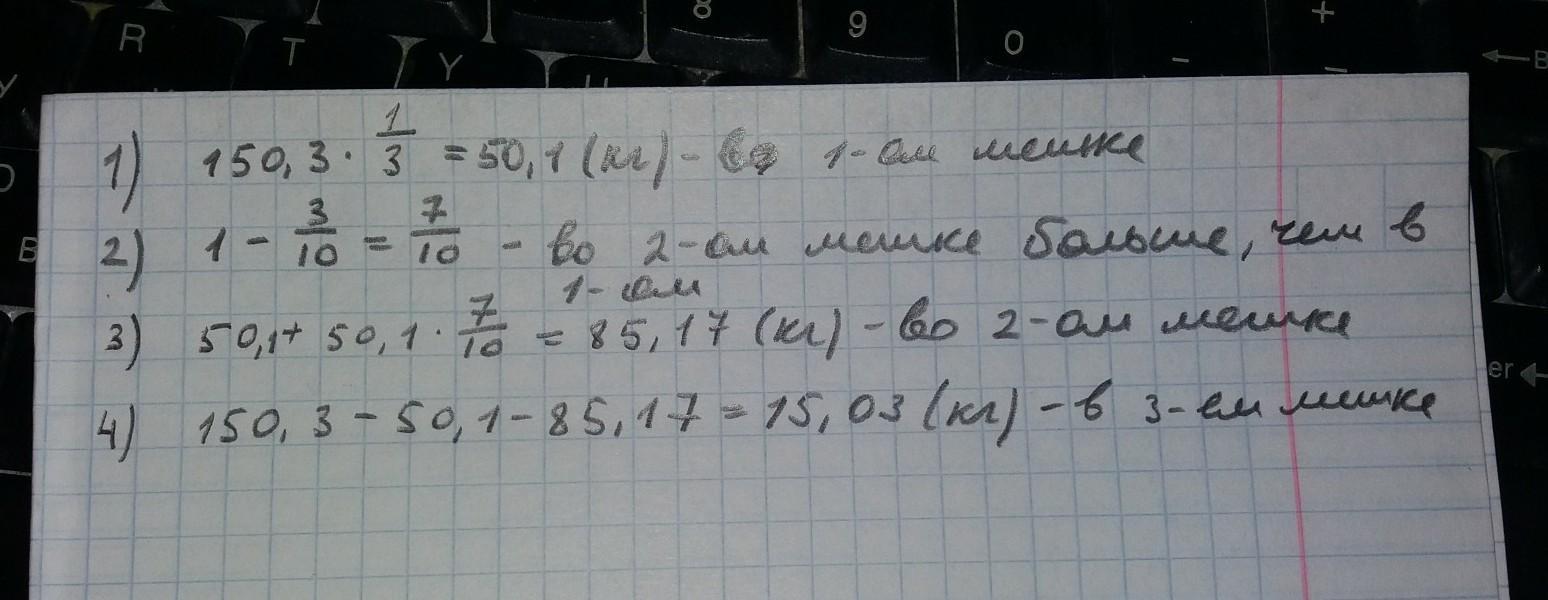 R T Y 8 9 0 - + -
1) 150,3 · 1/3 = 50,1 (кг) - во 1-ом мешке
2) 1 - 3/10 = 7/10 - во 2-ом мешке больше, чем в
1-ом
3) 50,1 + 50,1 · 7/10 = 85,17 (кг) - во 2-ом мешке
4) 150,3 - 50,1 - 85,17 = 15,03 (кг) - в 3-ем мешке